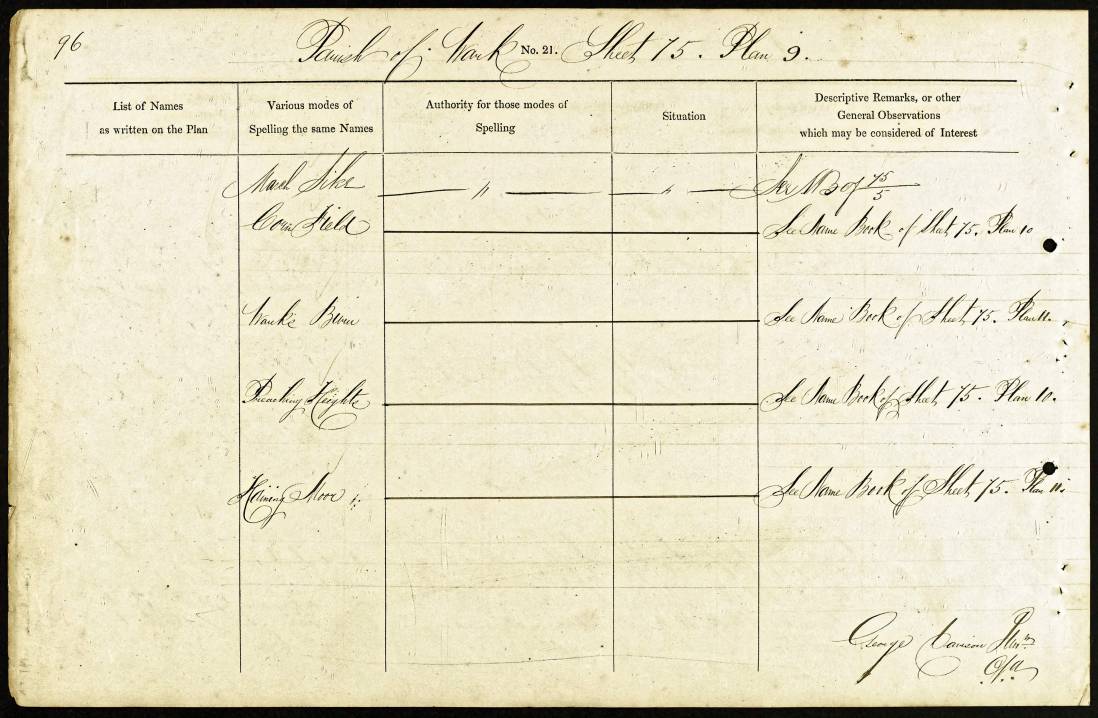 96
Parish of Wark No. 21. Sheet 75. Plan 9.
List of Names as written on the Plan
Various modes of Spelling the same Names
Authority for those modes of Spelling
Situation
Descriptive Remarks, or other General Observations which may be considered of Interest
Sike — " — — " — See NB of 75/5
Field See Name Book of Sheet 75. Plan 10
Wark's See Name Book of Sheet 75. Plan 11.
Preaching Heights See Name Book of Sheet 75. Plan 10.
Haining Moor See Name Book of Sheet 75. Plan 11.
George